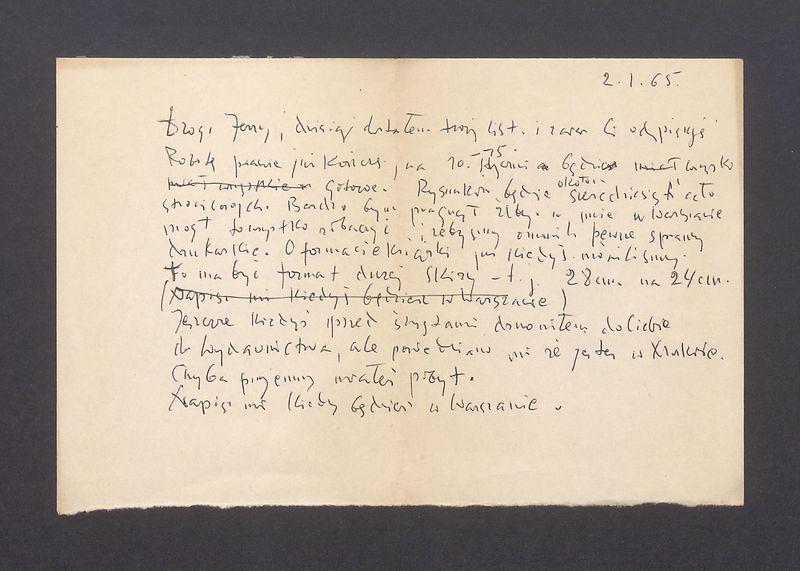 2.1.65.
Drogi Jerzy, dzisiaj dostałem twój list i zaraz Ci odpisuję
Robotę prawie już kończę, na 10.-15. stycznia będzie miał wszystko
gotowe. Rysunków będzie około sześćdziesiąt cało
stronicowych. Bardzo bym pragnął żeby u mnie w Warszawie
mógł to wszystko zobaczyć i żebyśmy omówili pewne sprawy
drukarskie. O formacie książki już kiedyś mówiliśmy.
to ma być format dużej Skiry - t. j. 28cm. na 24cm.
(Napisz mi kiedyś będziesz w Warszawie)
Jeszcze kiedyś przed świętami dzwoniłem do Ciebie
do Wydawnictwa, ale powiedziano mi że jesteś w Krakowie.
Chyba przyjemny miałeś pobyt.
Napisz mi kiedy będziesz w Warszawie.